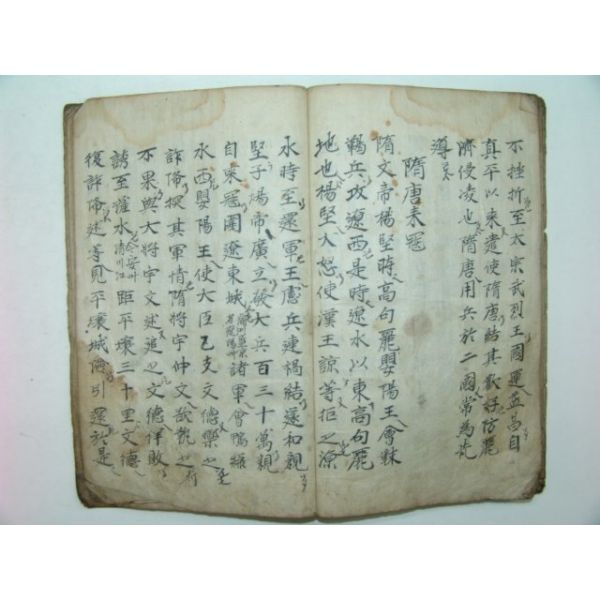 不挫折至太宗武烈王國運益昌自
真平以來遣使隋唐結其歡好防麗
濟侵凌也隋唐用兵於二國常為先
導
隋唐来寇
隋文帝楊堅時高句麗嬰陽王會靺
鞨兵攻遼西是時遼水以東高句麗
地也楊堅大怒使漢王諒等拒之
水時至還軍王憲兵連禍結遂和親
堅子煬帝廣立發大兵百三十萬親
自来寇圍遼東城 諸軍會鴨綠
水西嬰陽王使大臣乙支文德樂之
詐降探其軍情隋將宇仲文欲執之
不果與大將宇文述追之文德佯敗
誘至薩水 今安州清川江 距平壤三十里文德
復詐降述等見平壤城 引還於是